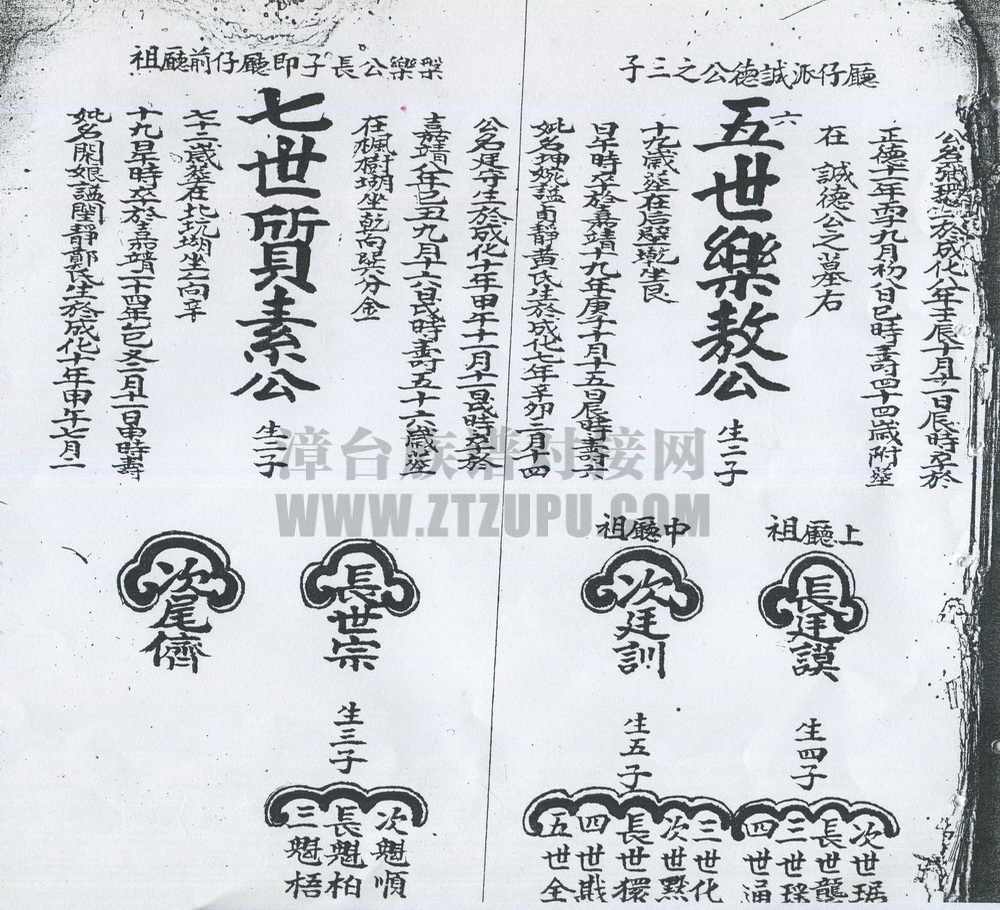 廳仔派誠德公之三子
六
五世樂敖公
生二子
在誠德公之墓右
正德十一年丙子九月初八日巳時壽四十四歲附塟
於成化八年壬辰十月廿一日辰時卒於
妣名坤婉謚甫靜黃氏生於成化七年辛卯二月十四
日早時卒於嘉靖十九年庚子十月十五日辰時壽六
十九歲塟在后壁坐艮
上廳祖
長廷謨
生四子
次世琚
長世龔
三世琛
四世通
中廳祖
次廷訓
生五子
三世化
次世點
長世
四世戢
五世全
槃樂公長子即廳仔前廳祖
七世質素公
生二子
公名廷守生於成化十年甲午十一月十一日辰時卒於
嘉靖八年己丑九月十六日辰時壽五十六歲塟
在楓樹坐乾向巽分金
妣名閑娘謚閨靜鄭氏生於成化十年甲午七月一
十九日早時卒於嘉靖二十四年乙巳冬二月十一日申時壽
七十二歲塟在北坑坐乙向辛
長世宗
生三子
次魁順
長魁柏
三魁梧
次尾儕
漳台族谱对接网
WWW.ZTZUPU.COM